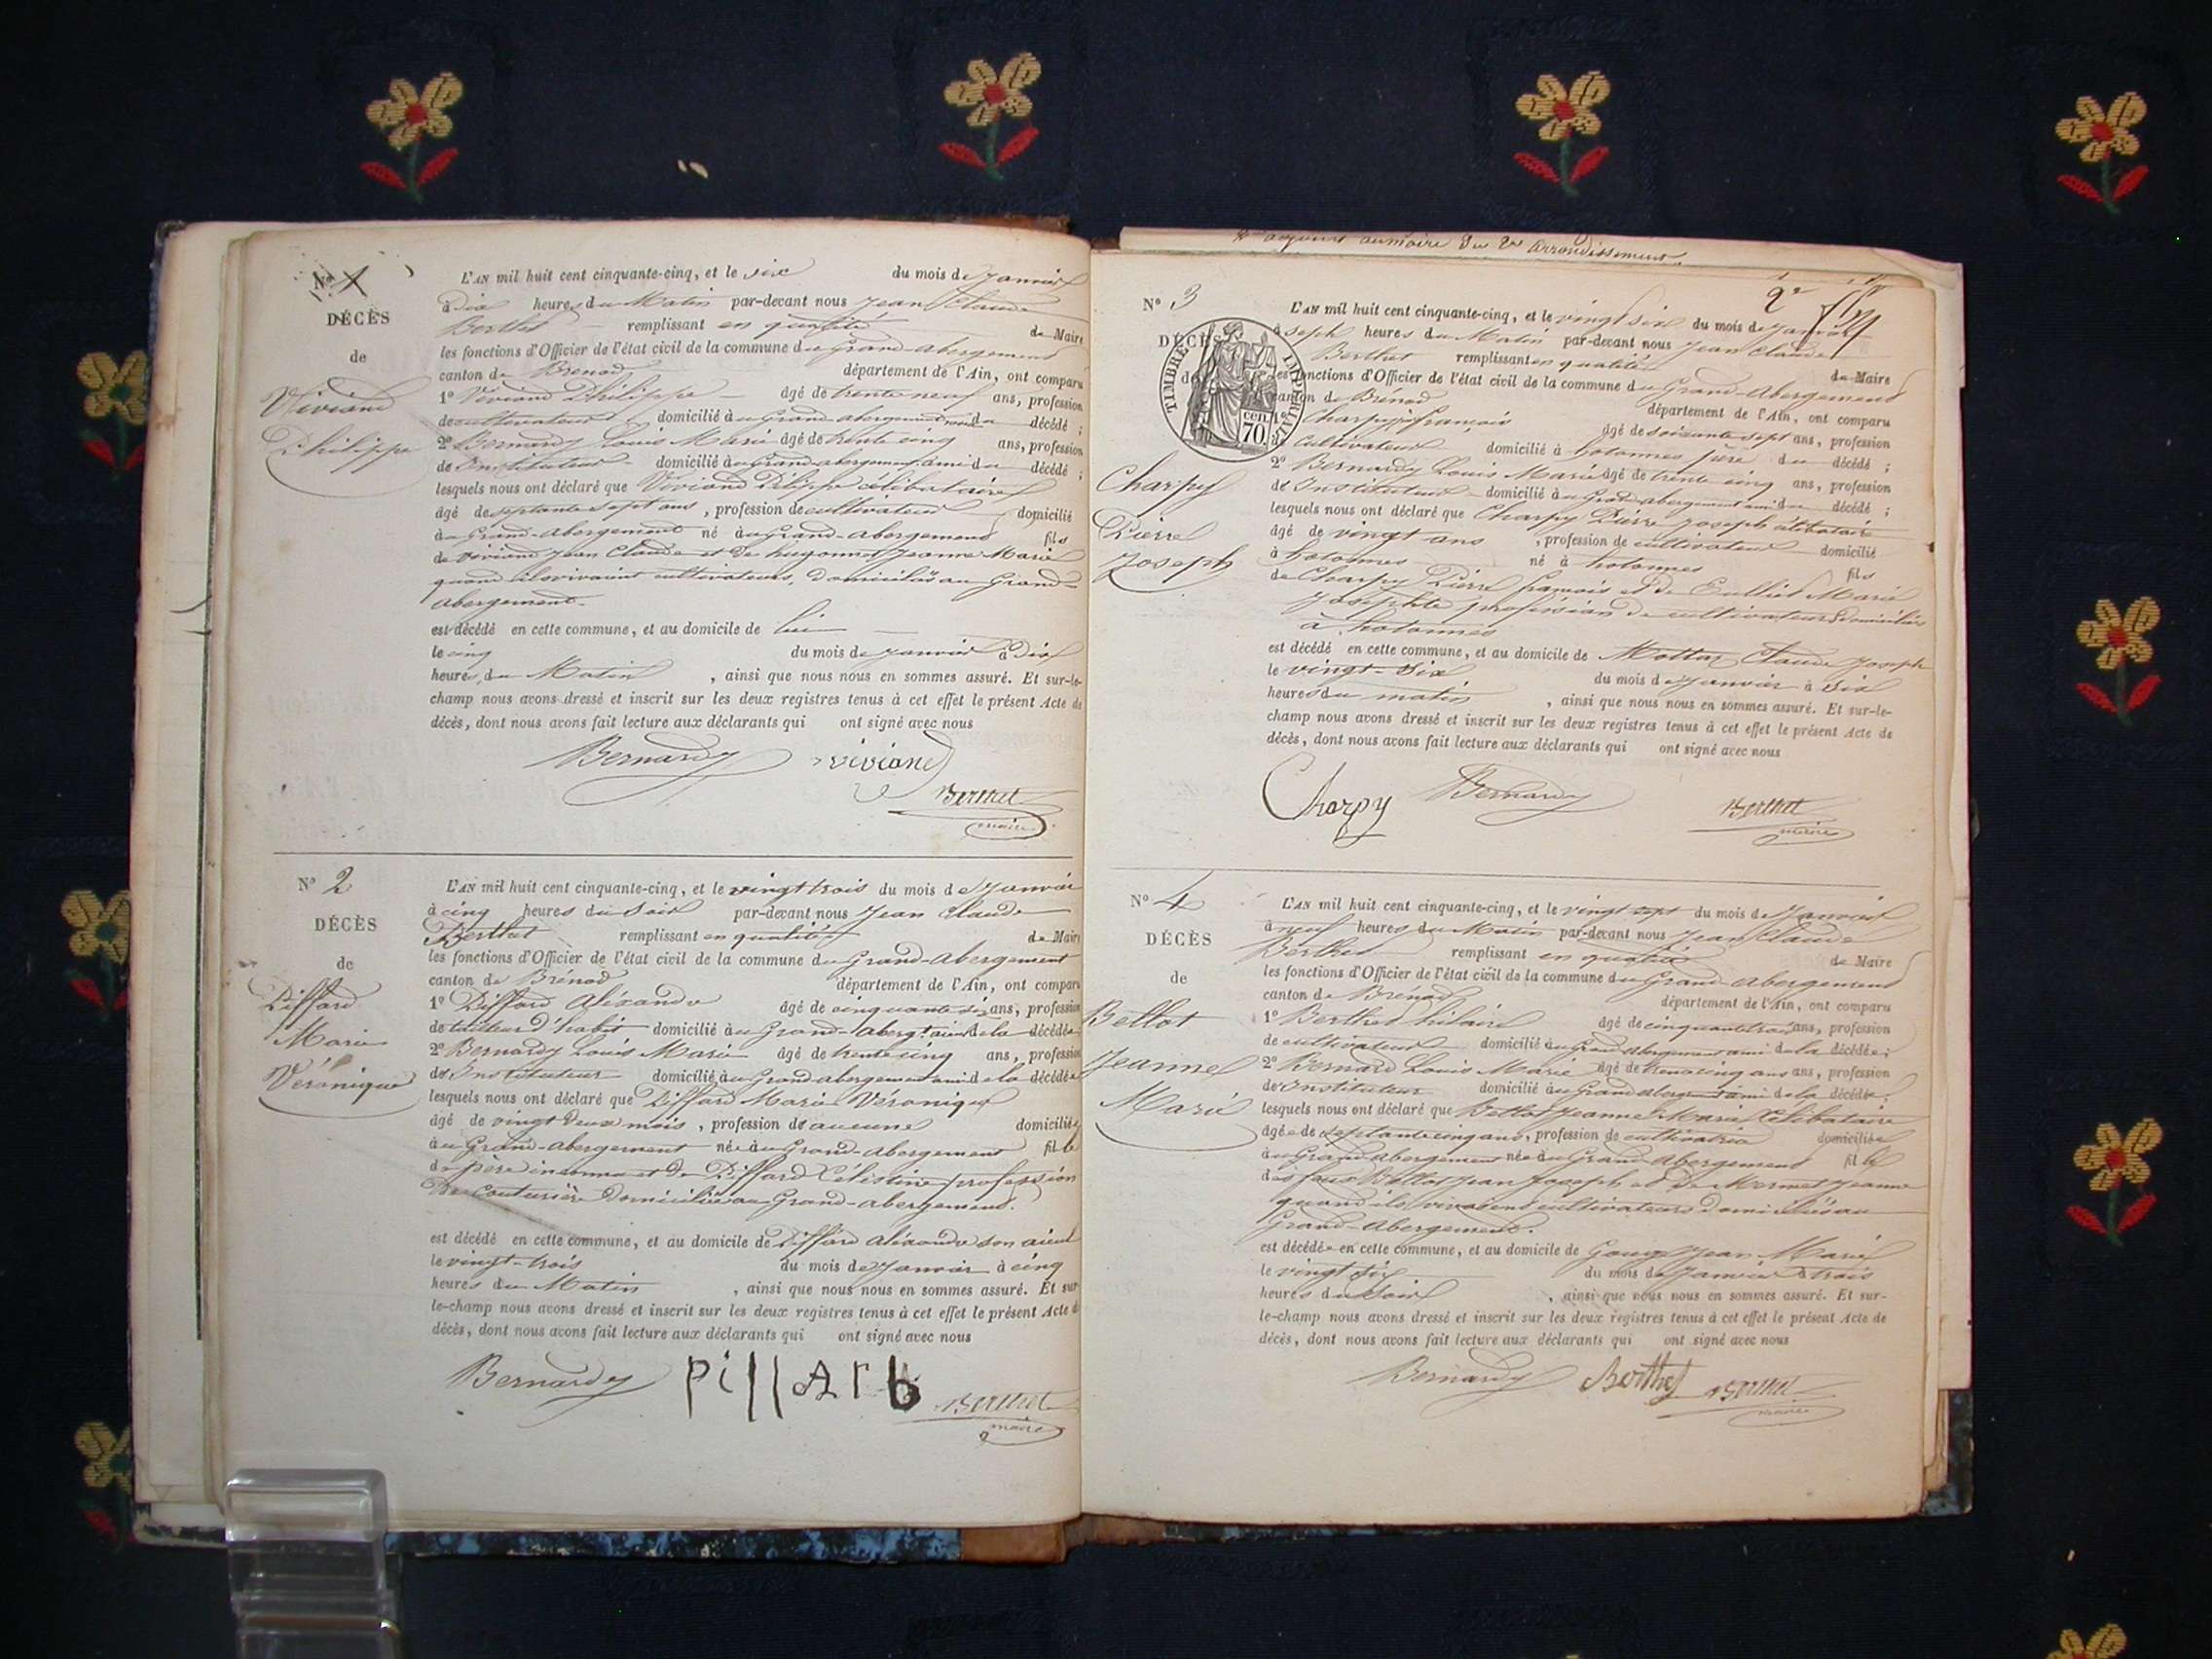 No 1
DÉCÈS
de
Viviand
Philippe
L'AN mil huit cent cinquante-cinq, et le six du mois de Janvier
à dix heures du Matin par-devant nous Jean Claude
Berthet remplissant en qualité de Maire
les fonctions d'Officier de l'état civil de la commune du Grand-abergement
canton de Brénod département de l'Ain, ont comparu
1° Viviand Philippe âgé de trente neuf ans, profession
de cultivateur domicilié au Grand-abergement du décédé ;
2° Bernardy Louis Marie âgé de trente cinq ans, profession
de Instituteur domicilié au Grand-abergement ami du décédé ;
lesquels nous ont déclaré que Viviand Philippe célibataire
âgé de septante sept ans, profession de cultivateur domicilié
au Grand-abergement né au Grand-abergement fils
de Viviand Jean Claude et de hugonnet Jeanne Marie
quand ils vivaient cultivateurs, domiciliés au Grand-
abergement.
est décédé en cette commune, et au domicile de lui
le cinq du mois de Janvier à dix
heures du Matin, ainsi que nous nous en sommes assuré. Et sur-le-
champ nous avons dressé et inscrit sur les deux registres tenus à cet effet le présent Acte de
décès, dont nous avons fait lecture aux déclarants qui ont signé avec nous
Bernardy viviand
Berthet
maire
No 2
DÉCÈS
de
Piffard
Marie
Véronique
L'AN mil huit cent cinquante-cinq, et le vingt trois du mois de Janvier
à cinq heures du Soir par-devant nous Jean Claude
Berthet remplissant en qualité de Maire
les fonctions d'Officier de l'état civil de la commune du Grand-abergement
canton de Brénod département de l'Ain, ont comparu
1° Piffard Aléxandre âgé de cinquante six ans, profession
de tailleur d'habit domicilié au Grand-aberg.t aieul de la décédée
2° Bernardy Louis Marie âgé de trente cinq ans, profession
de Instituteur domicilié au Grand abergement ami de la décédée
lesquels nous ont déclaré que Piffard Marie Véronique
âgé de vingt deux mois, profession de aucune domiciliée
au Grand-abergement née au Grand-abergement fille
de père inconnu et de Piffard Célestine profession
de Couturière domiciliée au Grand-abergement.
est décédé en cette commune, et au domicile de Piffard Aléxandre son aieul
le vingt-trois du mois de Janvier à cinq
heures du Matin, ainsi que nous nous en sommes assuré. Et sur
le-champ nous avons dressé et inscrit sur les deux registres tenus à cet effet le présent Acte de
décès, dont nous avons fait lecture aux déclarants qui ont signé avec nous
Bernardy
Berthet
maire
arrondissement.
2e
No 3
DÉCÈS
TIMBRE IMPÉRIAL
cen. 70
Charpy
Pierre
Joseph
L'AN mil huit cent cinquante-cinq, et le vingt six du mois de Janvier
à seph heures du Matin par-devant nous Jean Claude
Berthet remplissant en qualité de Maire
les fonctions d'Officier de l'état civil de la commune du Grand-abergement
canton de Brénod département de l'Ain, ont comparu
1° Charpy françois âgé de soixante sept ans, profession
cultivateur domicilié à hotonnes père du décédé ;
2° Bernardy Louis Marie âgé de trente cinq ans, profession
de Instituteur domicilié au Grand abergement ami du décédé ;
lesquels nous ont déclaré que Charpy Pierre Joseph célibataire
âgé de vingt ans, profession de cultivateur domicilié
à hotonnes né à hotonnes fils
de Charpy Pierre françois et de Culliet Marie
Josephte profession de cultivateurs domiciliés
à hotonnes
est décédé en cette commune, et au domicile de Mottaz Claude Joseph
le vingt-six du mois de Janvier à six
heures du matin, ainsi que nous nous en sommes assuré. Et sur-le-
champ nous avons dressé et inscrit sur les deux registres tenus à cet effet le présent Acte de
décès, dont nous avons fait lecture aux déclarants qui ont signé avec nous
Charpy Bernardy Berthet
maire
No 4
DÉCÈS
de
Bellot
Jeanne
Marie
L'AN mil huit cent cinquante-cinq, et le vingt sept du mois de Janvier
à neuf heures du Matin par-devant nous Jean Claude
Berthet remplissant en qualité de Maire
les fonctions d'Officier de l'état civil de la commune du Grand-abergement
canton de Brénod département de l'Ain, ont comparu
1° Berthet hilaire âgé de cinquante trois ans, profession
de cultivateur domicilié au Grand abergement ami de la décédée ;
2° Bernard Louis Marie âgé de trente cinq ans ans, profession
de Instituteur domicilié au Grand abergement ami de la décédée ;
lesquels nous ont déclaré que Bellot Jeanne Marie Célibataire
âgée de septante cinq ans, profession de cultivatrice domiciliée
au Grand abergement née au Grand-abergement fille
des feus Bellot Jean Joseph et de Mermet Jeanne
quand ils vivaient cultivateurs domiciliés au
Grand-abergement.
est décédée en cette commune, et au domicile de Gouge Jean Marie
le vingt six du mois de Janvier à trois
heures du Soir, ainsi que nous nous en sommes assuré. Et sur-
le-champ nous avons dressé et inscrit sur les deux registres tenus à cet effet le présent Acte de
décès, dont nous avons fait lecture aux déclarants qui ont signé avec nous
Bernardy Berthet Berthet
maire